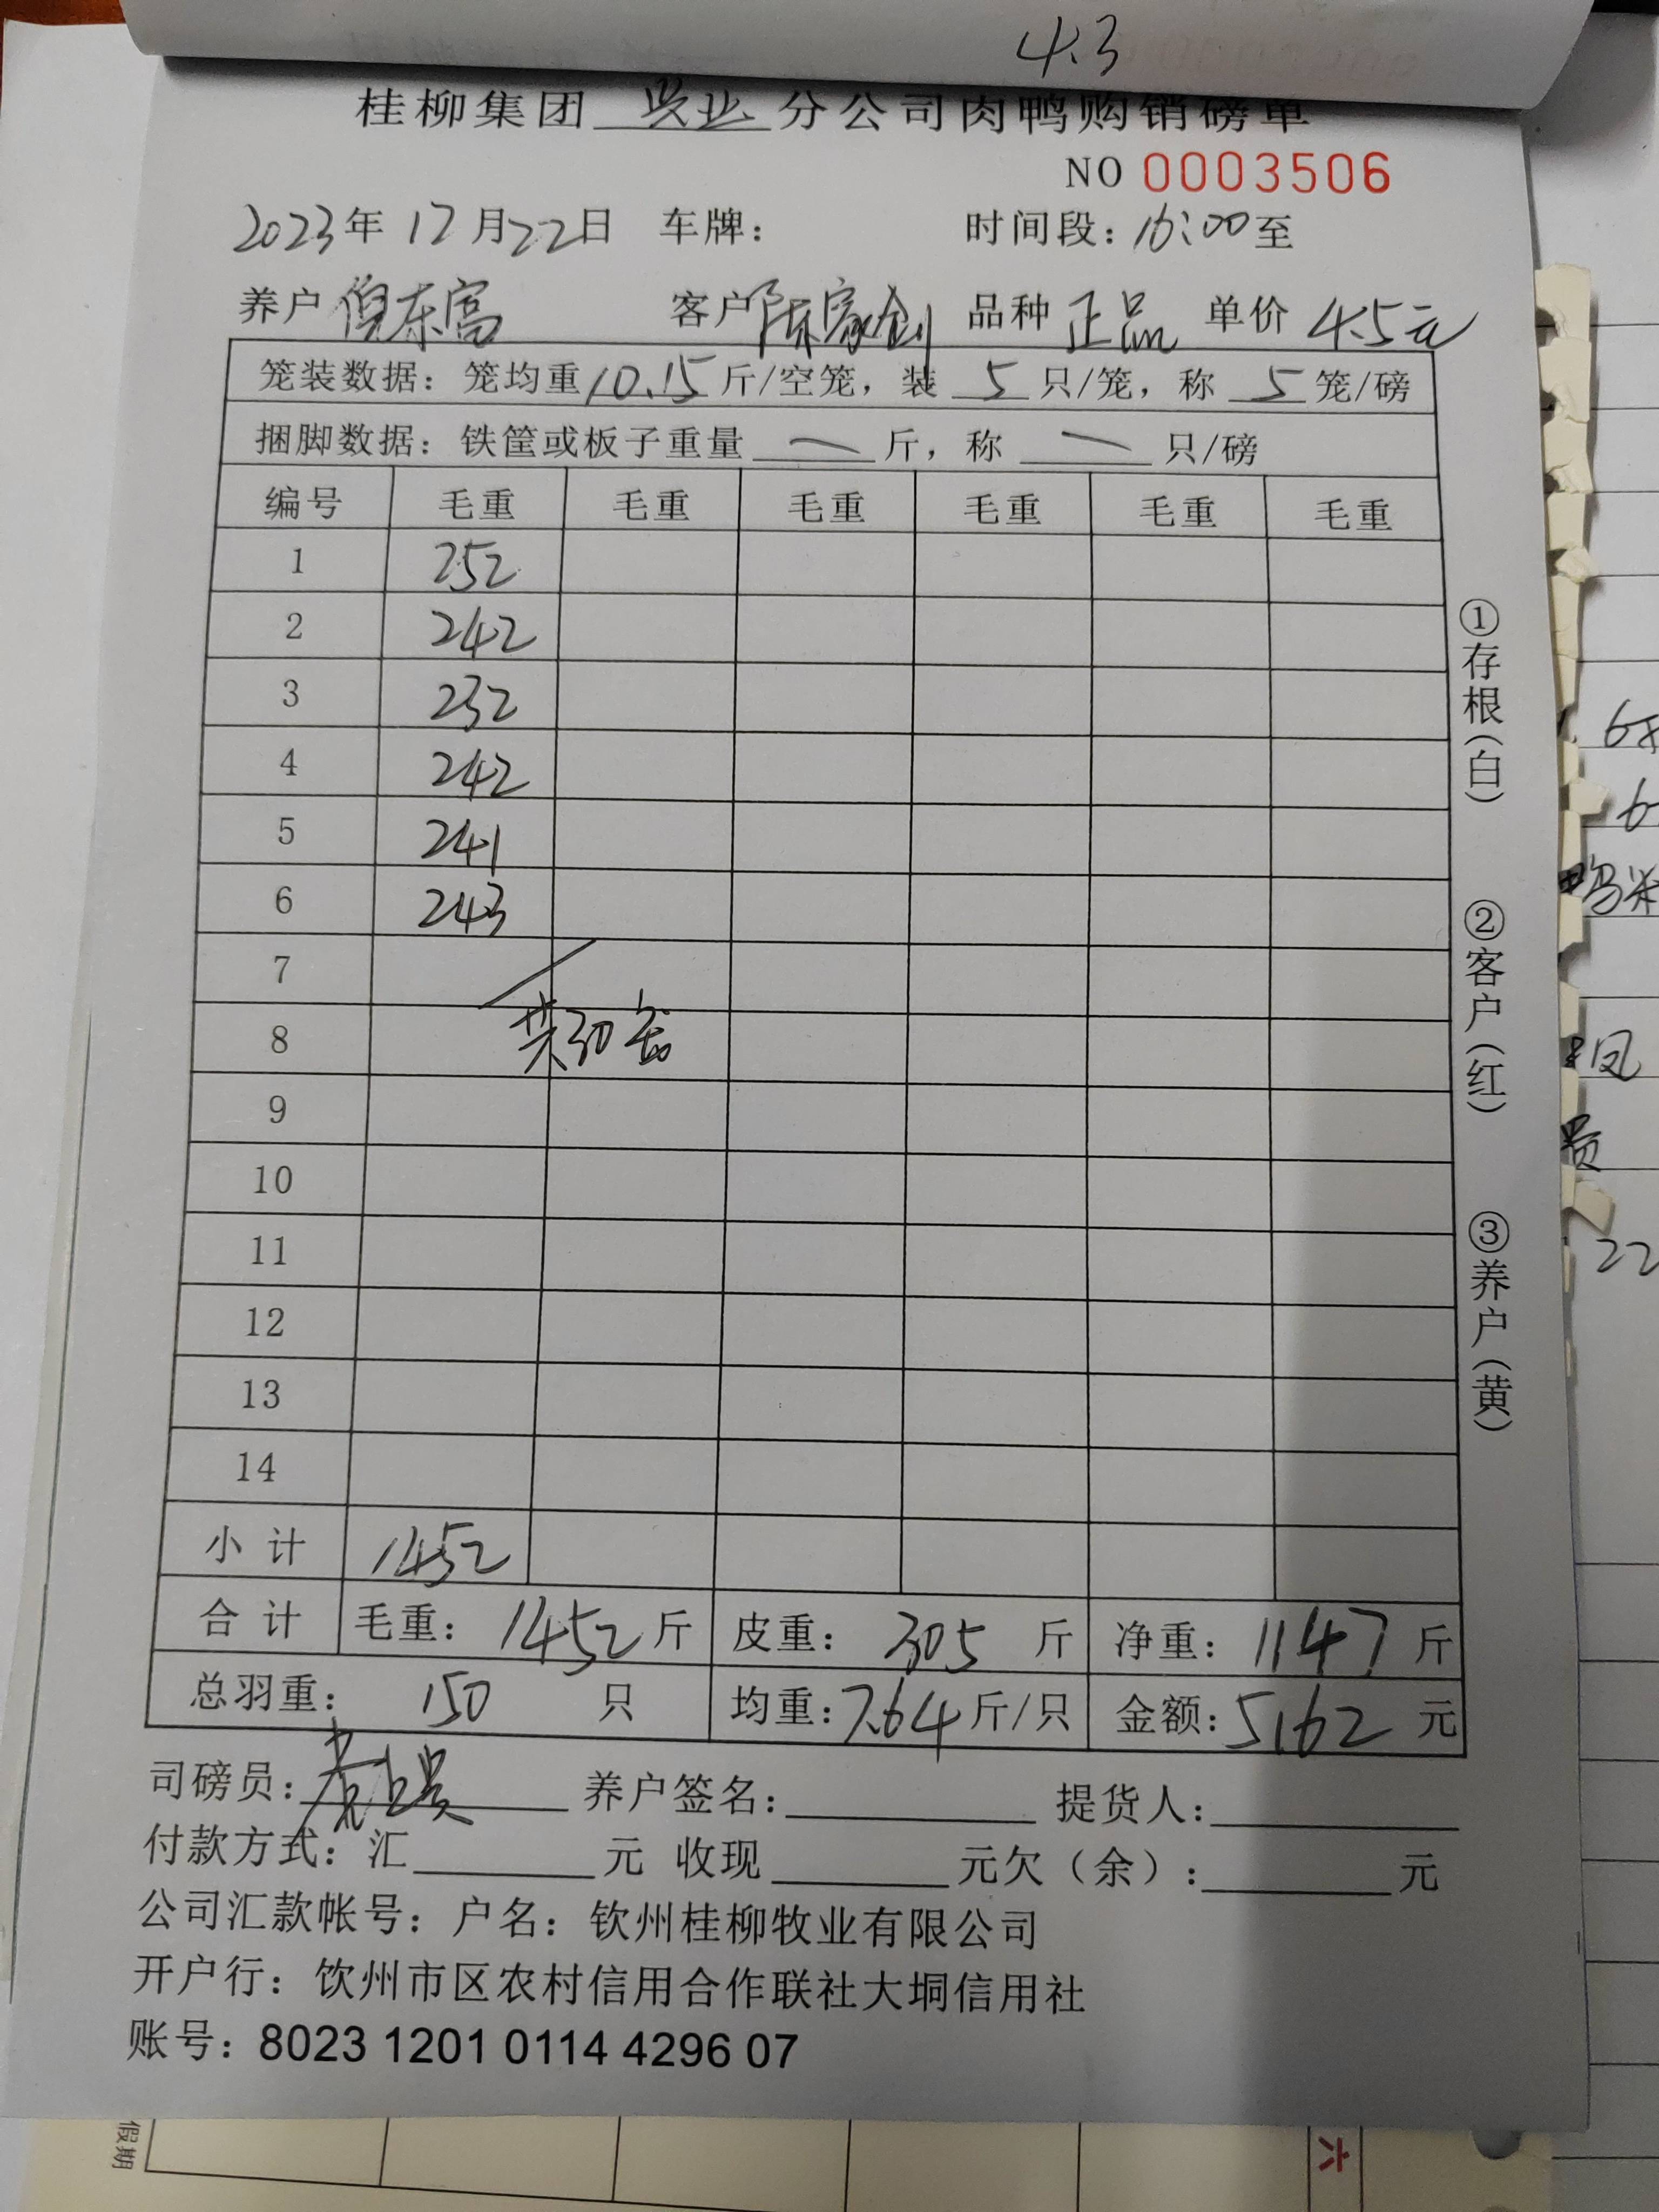 4.3
桂柳集团 兴业 分公司肉鸭购销磅单
NO 0003506
2023年 12月22日 车牌: 时间段: 16:00至
养户 倪东富 客户 陈家创 品种 正品 单价 4.5元
笼装数据: 笼均重10.15斤/空笼, 装 5 只/笼, 称 5 笼/磅
捆脚数据: 铁筐或板子重量 斤, 称 只/磅
编号 毛重 毛重 毛重 毛重 毛重 毛重
1 252
2 242
3 232
4 242
5 241
6 243
7
8 共30笼
9
10
11
12
13
14
小计 1452
合计 毛重: 1452斤 皮重: 305 斤 净重: 1147斤
总羽重: 150 只 均重:7.64斤/只 金额:5162元
司磅员: 养户签名: 提货人:
付款方式: 汇 元 收现 元欠(余): 元
公司汇款帐号: 户名: 钦州桂柳牧业有限公司
开户行: 饮州市区农村信用合作联社大垌信用社
账号: 8023 1201 0114 4296 07
①存根(白)
②客户(红)
③养户(黄)
凤
贵
22
假期
六